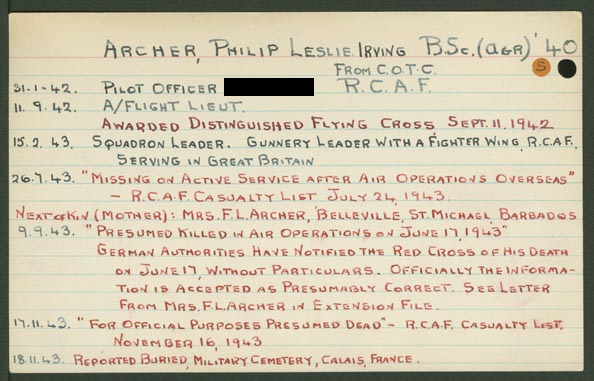 ARCHER, PHILIP LESLIE IRVING B.Sc. (AGR)'40
FROM C.O.T.C. S
31-1-42. PILOT OFFICER R.C.A.F.
11.9.42. A/FLIGHT LIEUT.
AWARDED DISTINGUISHED FLYING CROSS SEPT. 11, 1942
15.2.43. SQUADRON LEADER. GUNNERY LEADER WITH A FIGHTER WING, R.C.A.F.
SERVING IN GREAT BRITAIN
26.7.43. "MISSING ON ACTIVE SERVICE AFTER AIR OPERATIONS OVERSEAS"
- R.C.A.F. CASUALTY LIST JULY 24, 1943.
NEXT OF KIN (MOTHER): MRS. F.L. ARCHER, BELLEVILLE, ST. MICHAEL, BARBADOS
9.9.43. "PRESUMED KILLED IN AIR OPERATIONS ON JUNE 17, 1943"
GERMAN AUTHORITIES HAVE NOTIFIED THE RED CROSS OF HIS DEATH
ON JUNE 17, WITHOUT PARTICULARS. OFFICIALLY THE INFORMA-
TION IS ACCEPTED AS PRESUMABLY CORRECT. SEE LETTER
FROM MRS. F.L. ARCHER IN EXTENSION FILE.
17.11.43. "FOR OFFICIAL PURPOSES PRESUMED DEAD" - R.C.A.F. CASUALTY LIST,
NOVEMBER 16, 1943
18.11.43. REPORTED BURIED, MILITARY CEMETERY, CALAIS, FRANCE.